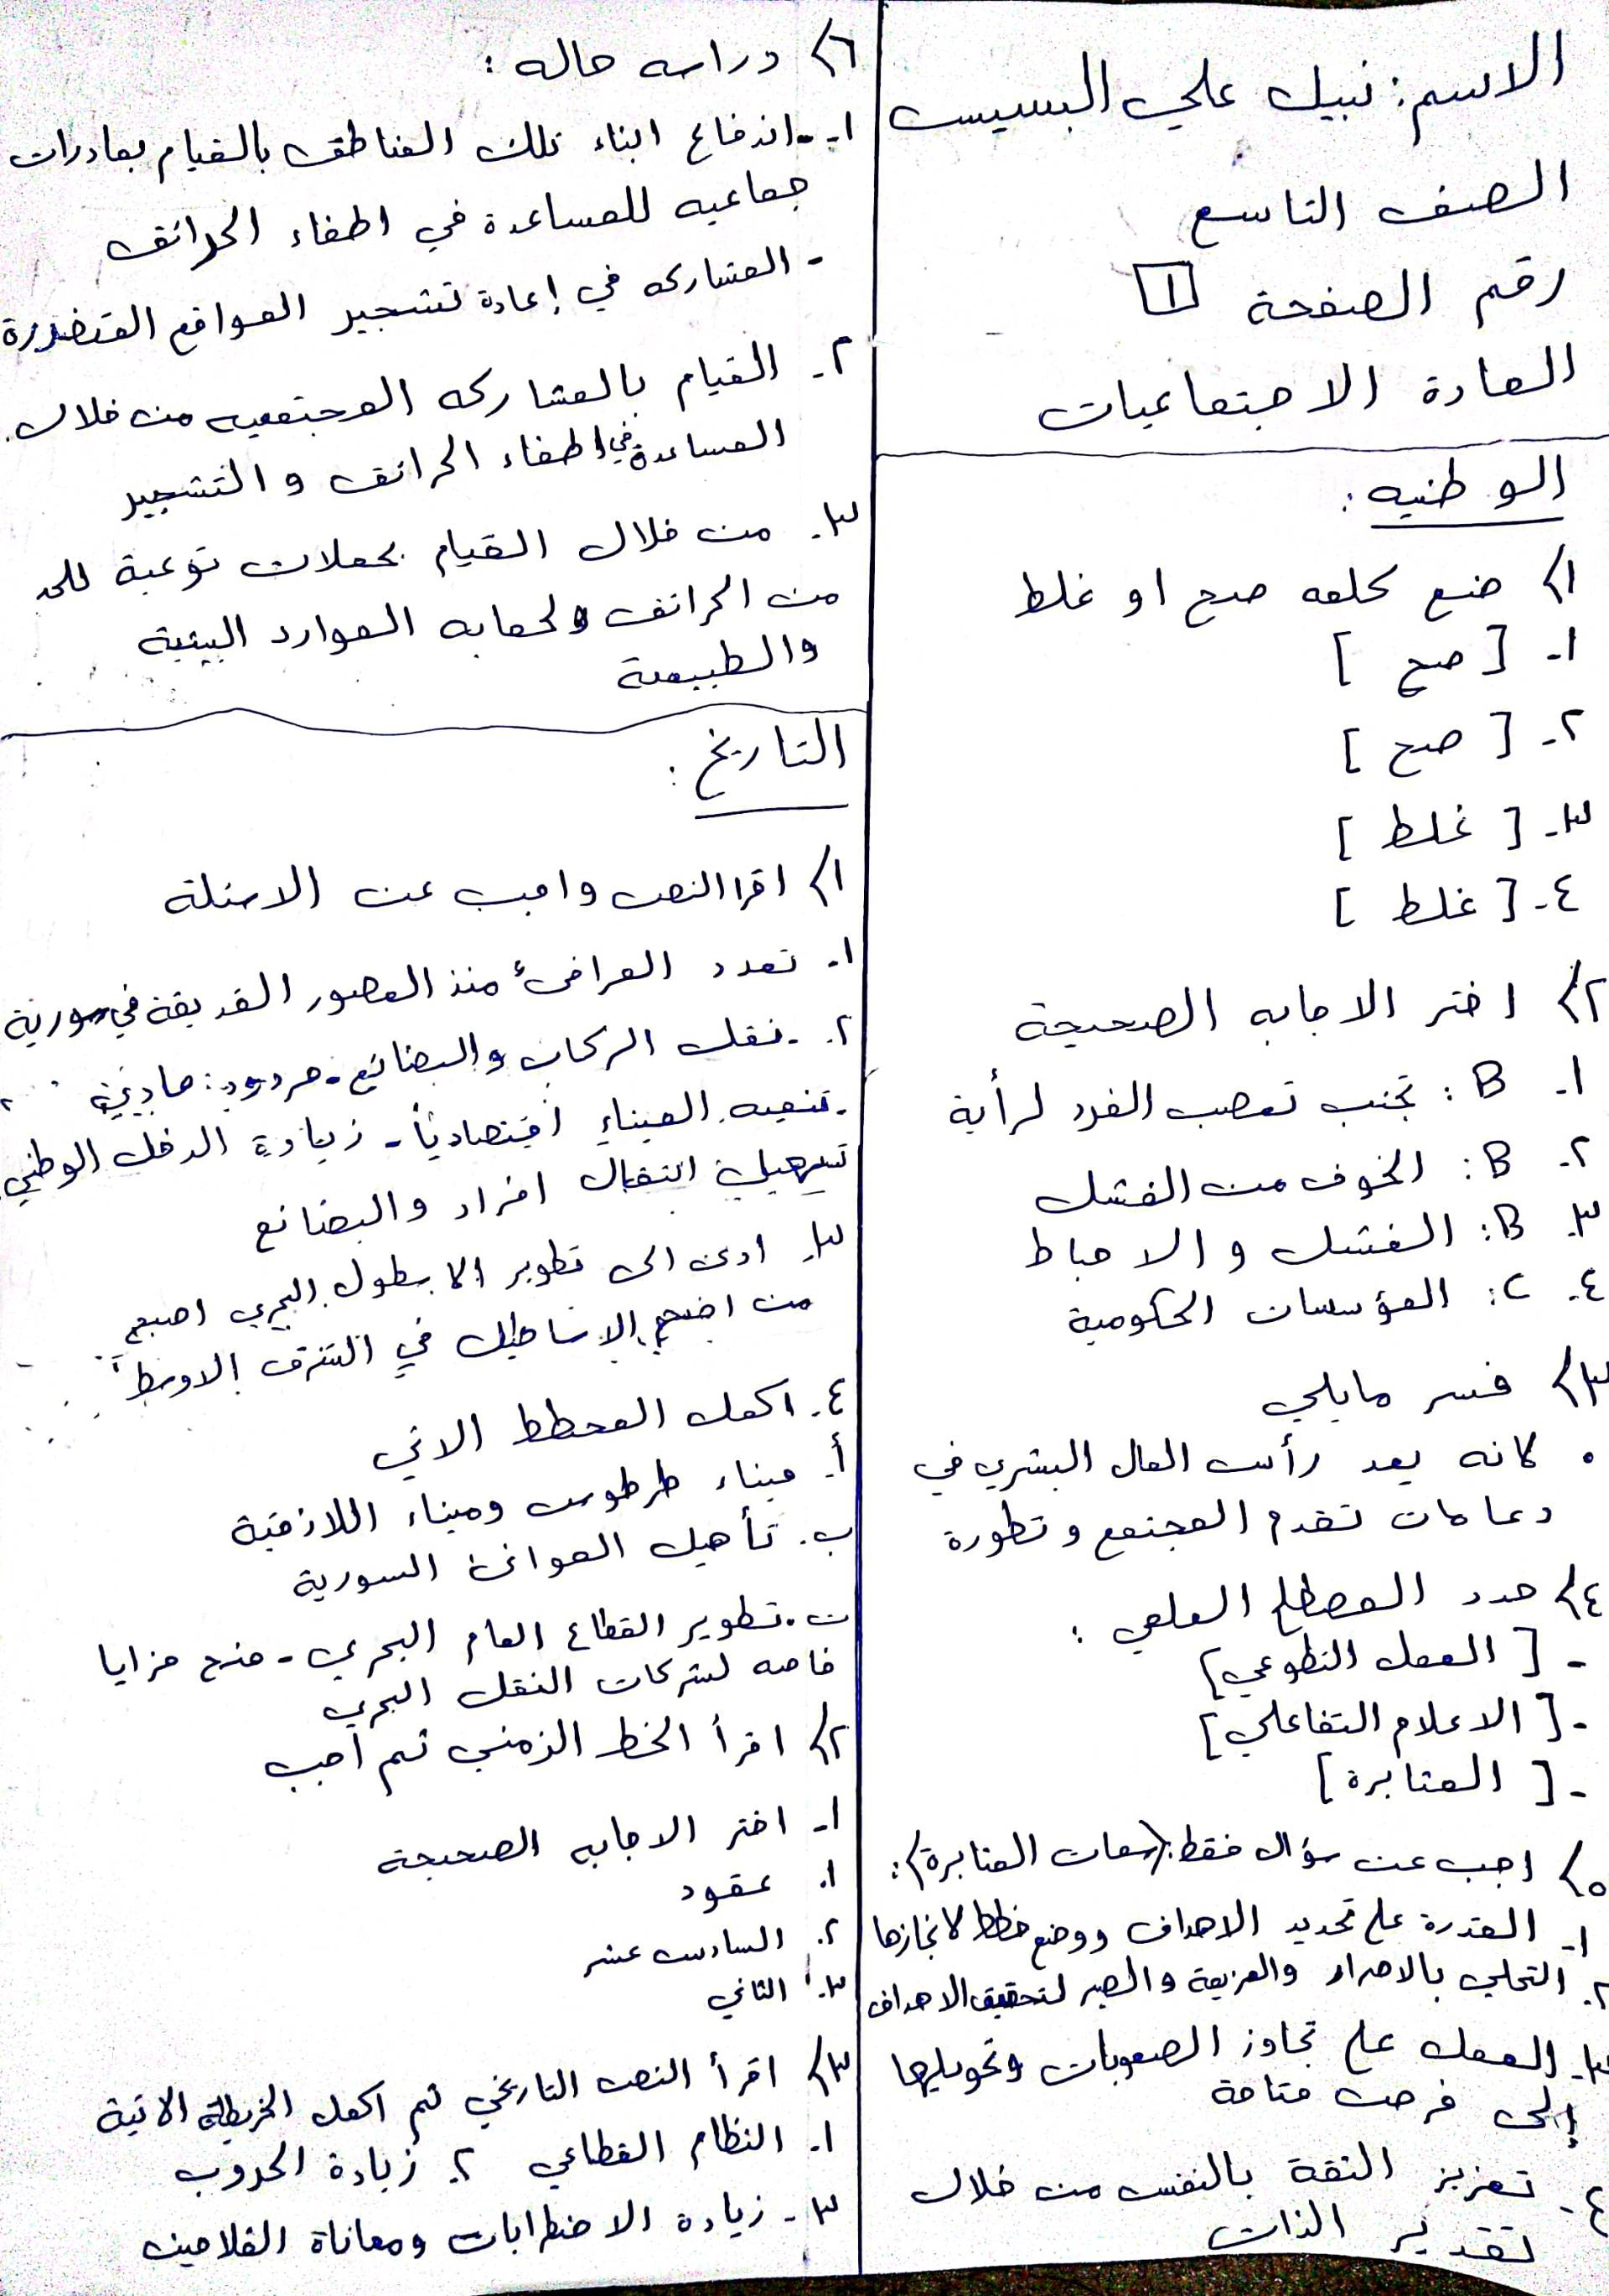 الاسم: نبيل علي البسيس
الصف التاسع
رقم الصفحة 1
المادة الاجتماعيات
الوطنيه:
١> ضع كلمه صح او غلط
١- [ صح ]
٢- [ صح ]
٣- [ غلط ]
٤- [ غلط ]
٢> اختر الاجابه الصحيحة
١- B: تجنب تعصب الفرد لرأية
٢- B: الخوف من الفشل
٣- B: الفشل و الاحباط
٤- C: المؤسسات الحكومية
٣> فسر مايلي
• كانه يعد رأس المال البشري في
دعامات تقدم المجتمع وتطورة
٤> حدد المصطلح العلمي:
- [ العمل التطوعي]
- [ الاعلام التفاعلي]
- [ المثابرة ]
٥> اجب عن سؤال فقط: (سمات المثابرة):
١- القدرة على تحديد الاهداف ووضع خطط لانجازها
٢- التحلي بالاصرار والعزيمة والصبر لتحقيق الاهداف
٣- العمل على تجاوز الصعوبات وتحويلها
إلى فرص متاحة
٤- تعزيز الثقة بالنفس من خلال
تقدير الذات
٦> دراسه حاله:
١- - اندفاع ابناء تلك المناطق بالقيام بمادرات
جماعيه للمساعدة في اطفاء الحرائق
- المشاركه في إعادة تشجير المواقع المتضررة
٢- القيام بالمشاركه المجتمعيه من خلال
المساعدة في اطفاء الحرائق و التشجير
٣- من خلال القيام بحملات توعية للحد
من الحرائق ولحمايه الموارد البيئية
والطبيعة
التاريخ:
١> اقرا النص واجب عن الاسئلة
١- تعدد المرافئ منذ العصور القديمة في سورية
٢- - نقل الركاب والبضائع - مردود: مادي
- تنميه الميناء اقتصادياً - زيادة الدخل الوطني
تسهيل انتقال افراد والبضائع
٣- ادى الى تطوير الاسطول البحري اصبح
من اضخم الاساطيل في الشرق الاوسط
٤- اكمل المخطط الاتي
أ- ميناء طرطوس وميناء اللاذقية
ب- تأهيل الموانئ السورية
ت- تطوير القطاع العام البحري - منح مزايا
خاصه لشركات النقل البحري
٢> اقرأ الخط الزمني ثم أجب
١- اختر الاجابه الصحيحة
١. عقود
٢. السادس عشر
٣. الثاني
٣> اقرأ النص التاريخي ثم اكمل الخريطة الاتية
١- النظام القطاعي ٢- زيادة الحروب
٣- زيادة الاضطرابات ومعاناة الفلاحين